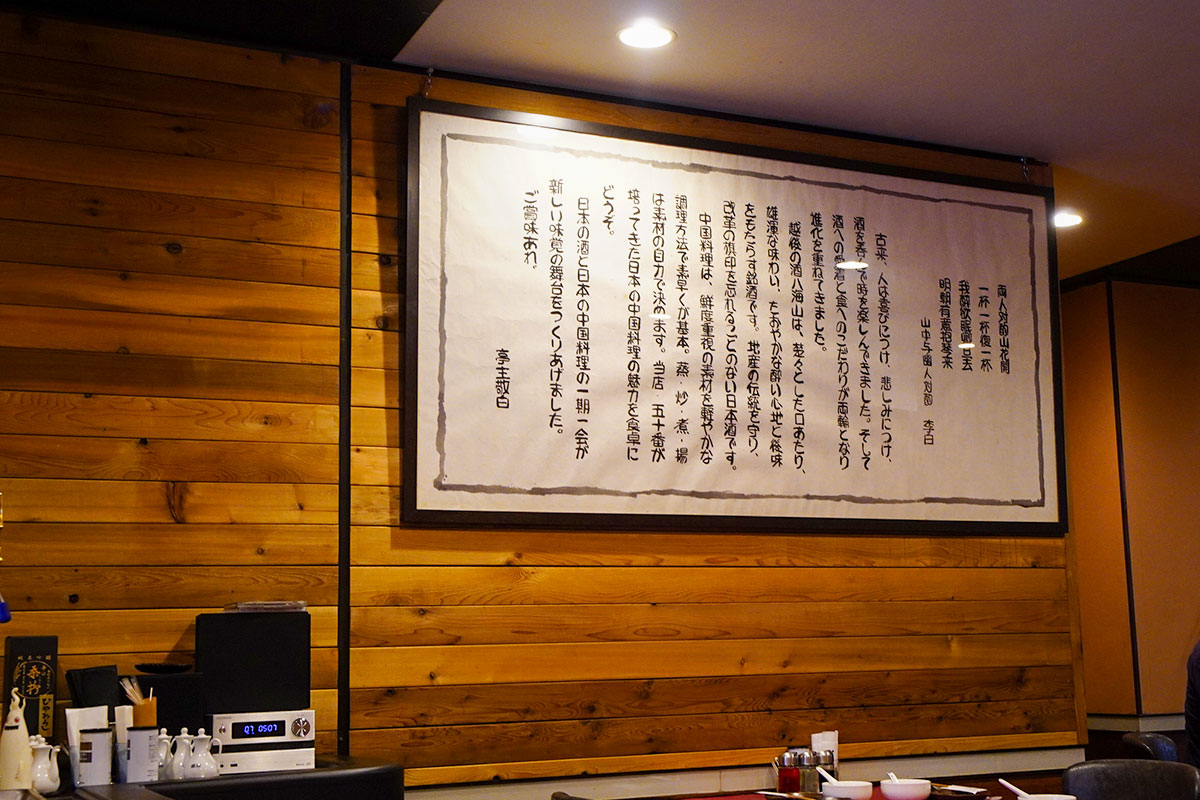 両人対酌山花開
一杯一杯復一杯
我酔欲眠卿且去
明朝有意抱琴来
山中与幽人対酌 李白
古来、人は喜びにつけ、悲しみにつけ、
酒を呑んで時を楽しんできました。そして
酒への愛着と食へのこだわりが両輪となり
進化を重ねてきました。
越後の酒八海山は、楚々とした口あたり、
雄渾な味わい、たおやかな酔い心地と後味
をもたらす銘酒です。地産の伝統を守り、
改革の旗印を忘れることのない日本酒です。
中国料理は、鮮度重視の素材を軽やかな
調理方法で素早くが基本。蒸・炒・煮・揚
は素材の自力で決めます。当店・五十番が
培ってきた日本の中国料理の魅力を食卓に
どうぞ。
日本の酒と日本の中国料理の一期一会が
新しい味覚の舞台をつくりあげました。
ご賞味あれ。
亭主敬白
07 0507